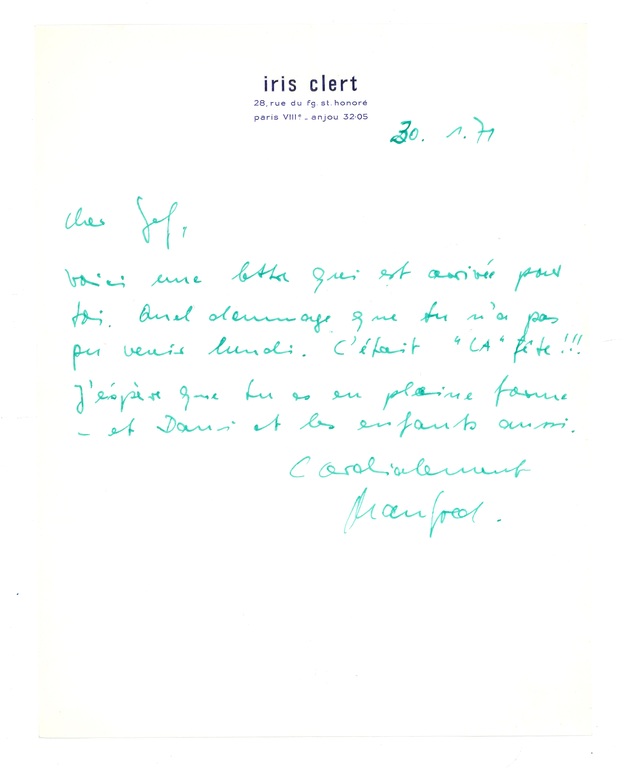 iris clert
28, rue du fg. st. honoré
paris VIIIe - anjou 32-05
30. 1. 71
Cher Jef,
Voici une lettre qui est arrivée pour
toi. Quel dommage que tu n'a pas
pu venir lundi. C'était "LA" fête!!!
J'espère que tu es en pleine forme
- et Dani et les enfants aussi.
Cordialement
Manfred.